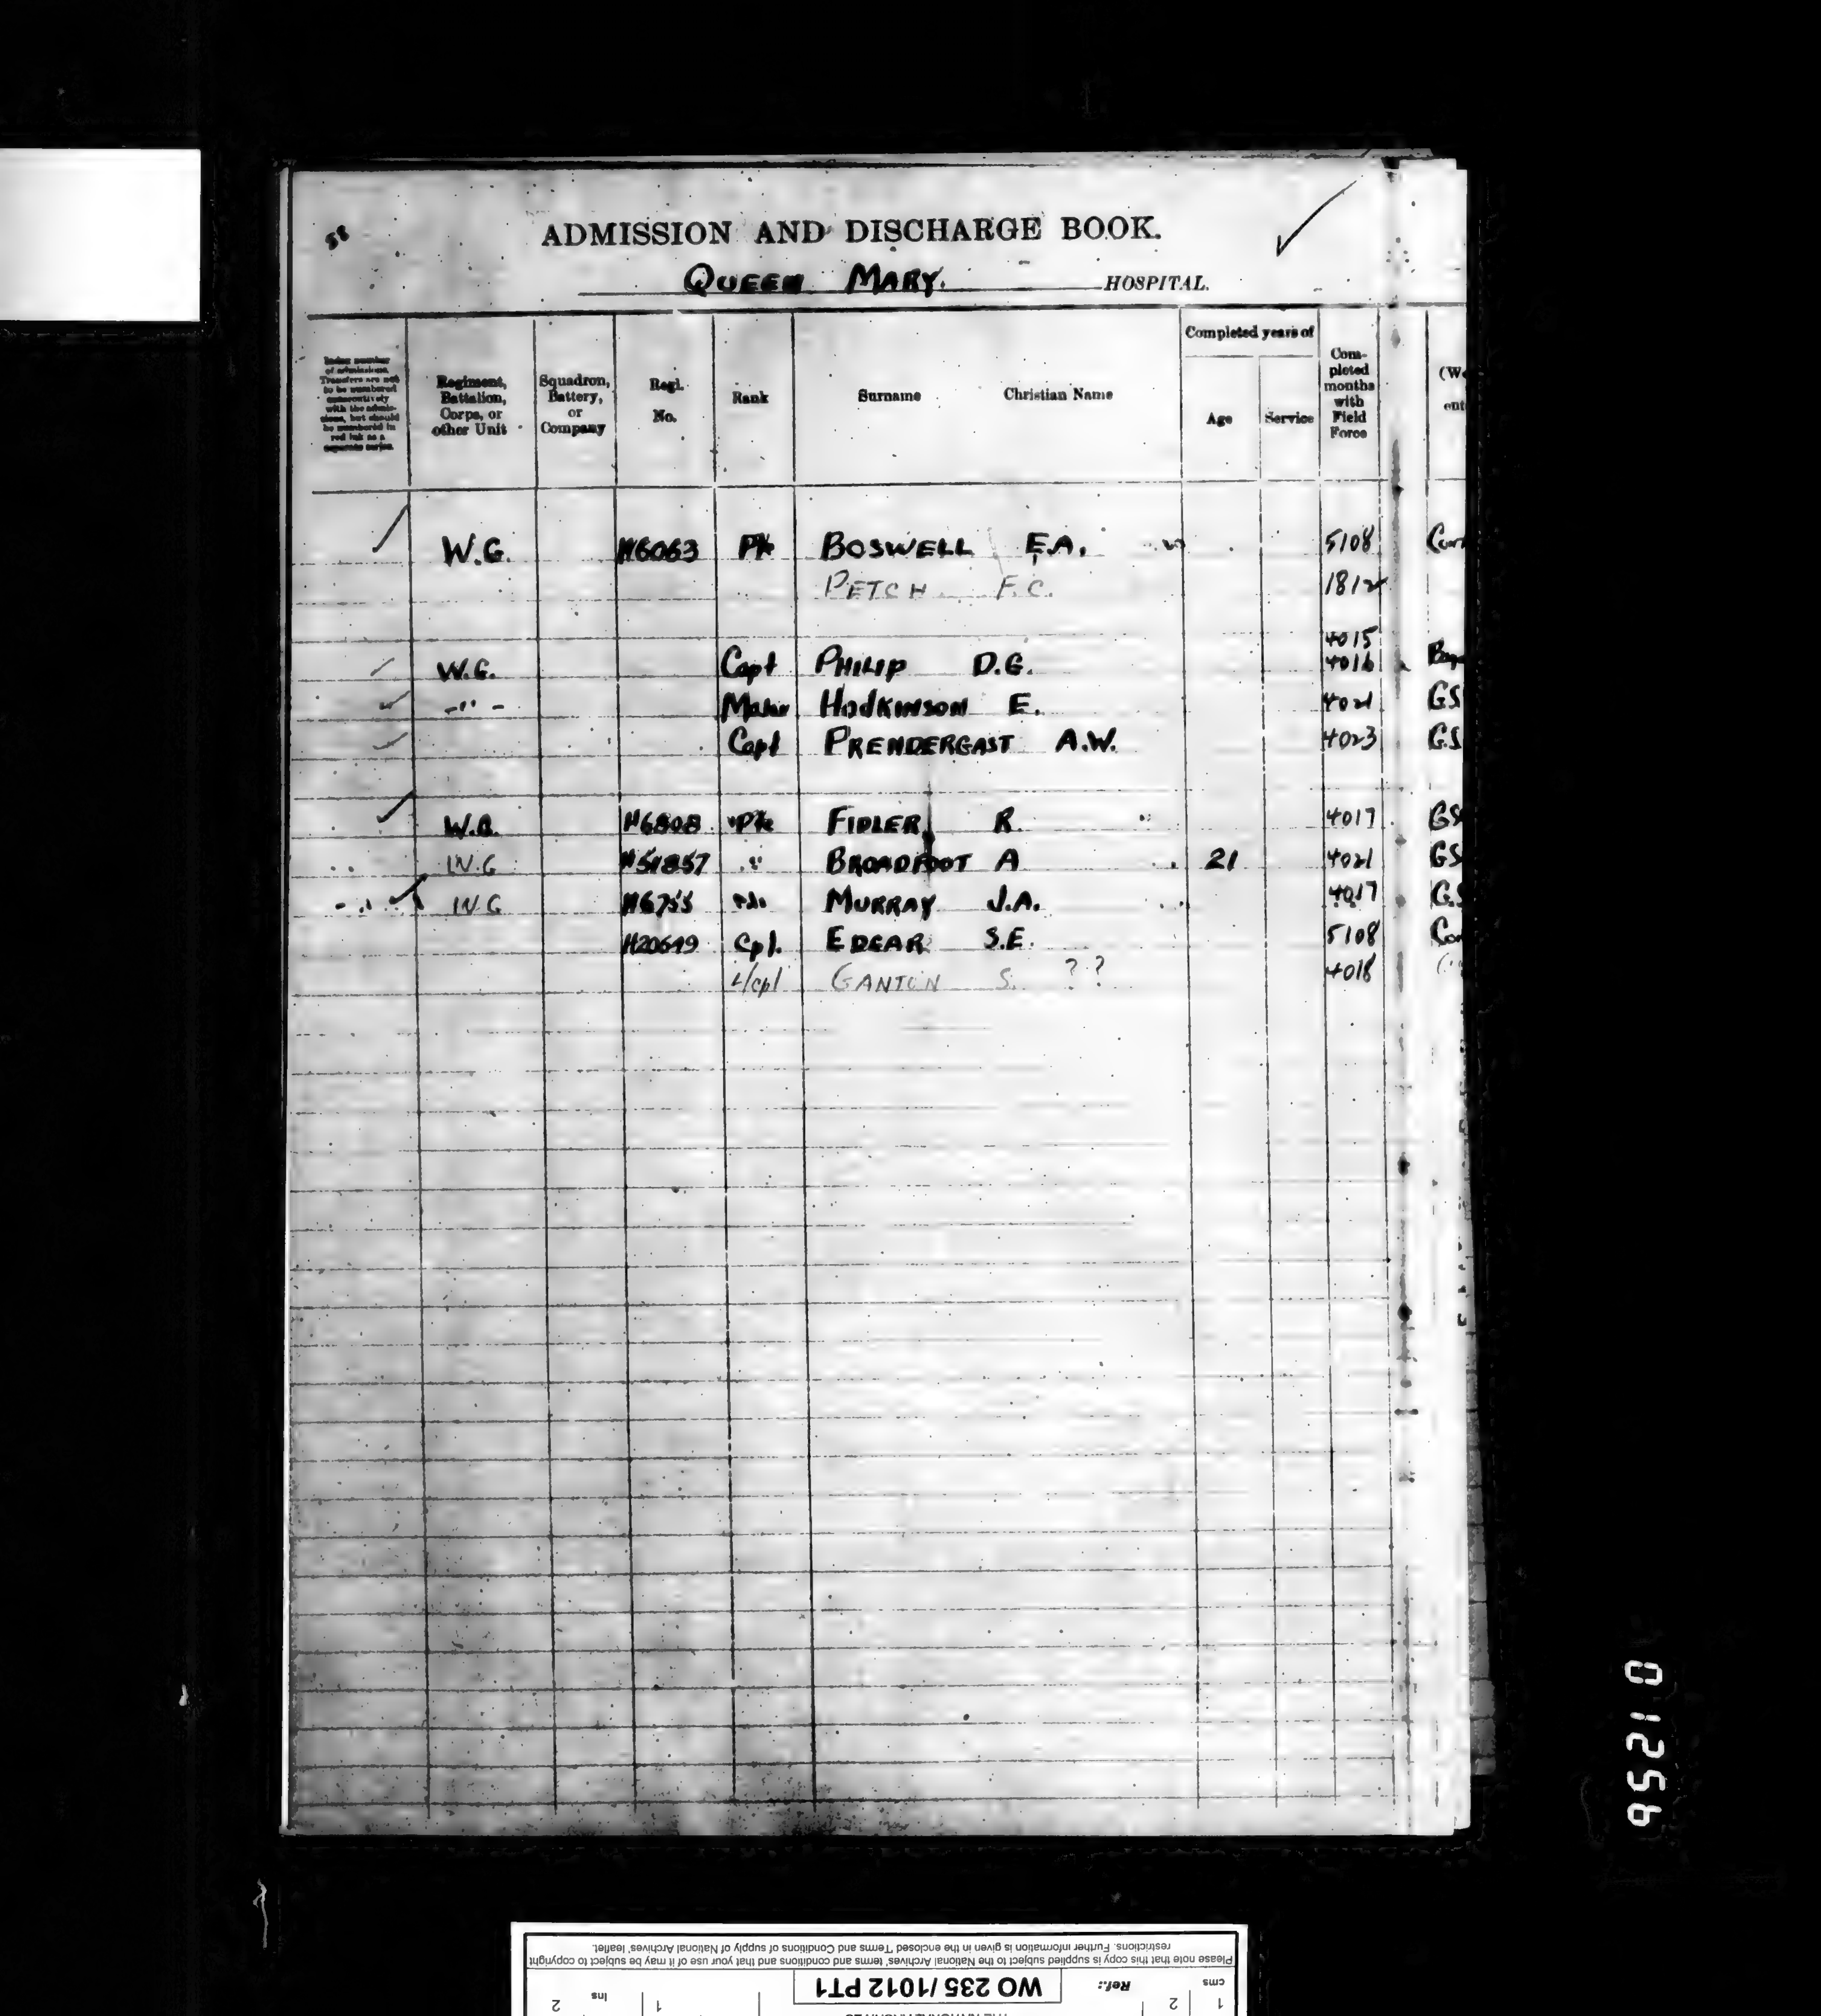 58
ADMISSION AND DISCHARGE BOOK.
QUEEN MARY. HOSPITAL.
Index number of admissions. Transfers are not to be numbered consecutively with the admissions, but should be numbered in red ink as a separate series.
Regiment, Battalion, Corps, or other Unit
Squadron, Battery, or Company
Regl. No.
Rank
Surname
Christian Name
Completed years of
Age
Service
Com-pleted months with Field Force
W.G. H6063 Pte BOSWELL E.A. 5108
PETCH F.C. 1812
4015
W.G. Capt PHILIP D.G. 4016
-"- Major HODKINSON E. 4021 GS
Capt PRENDERGAST A.W. 4023 G.S
W.G. H6808 Pte FIDLER R. 4017 GS
W.G H51857 " BROADFOOT A 21 4021 GS
W.G H6755 MURRAY J.A. 4017 G.S
H20649 Cpl. EDGAR S.E. 5108
L/cpl GANTON S. ?? 4018
01256
Please note that this copy is supplied subject to the National Archives' terms and conditions and that your use of it may be subject to copyright
restrictions. Further information is given in the enclosed 'Terms and Conditions of supply of National Archives' leaflet.
cms 1 2
Ref.: WO 235 / 1012 PT1
Ins 1 2